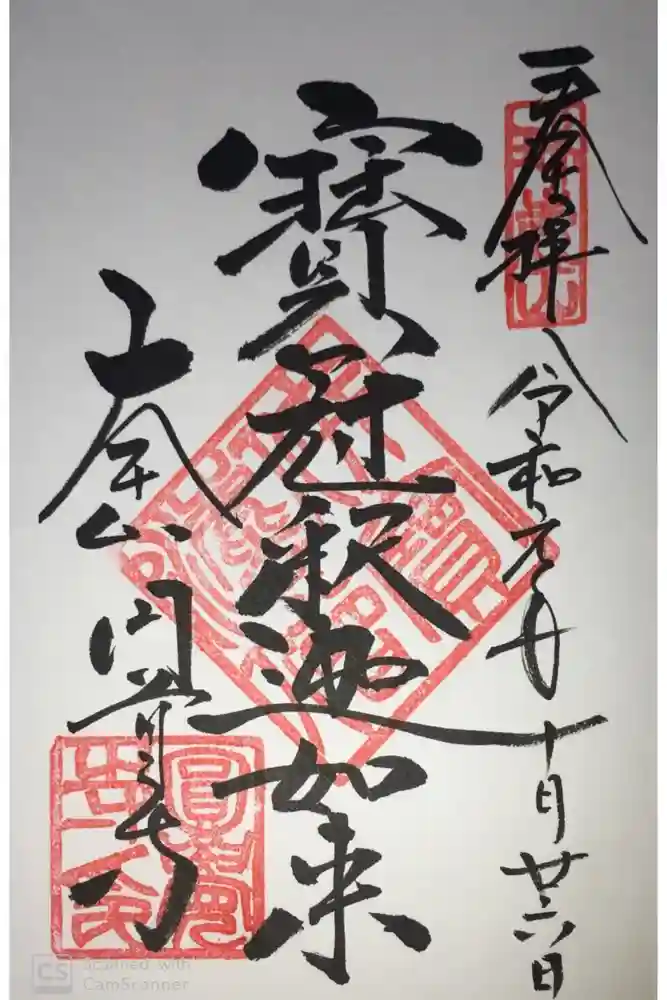 奉拝 令和元年十月廿六日
寶冠釈迦如来
大本山 円覚寺
CS Scanned with
CamScanner